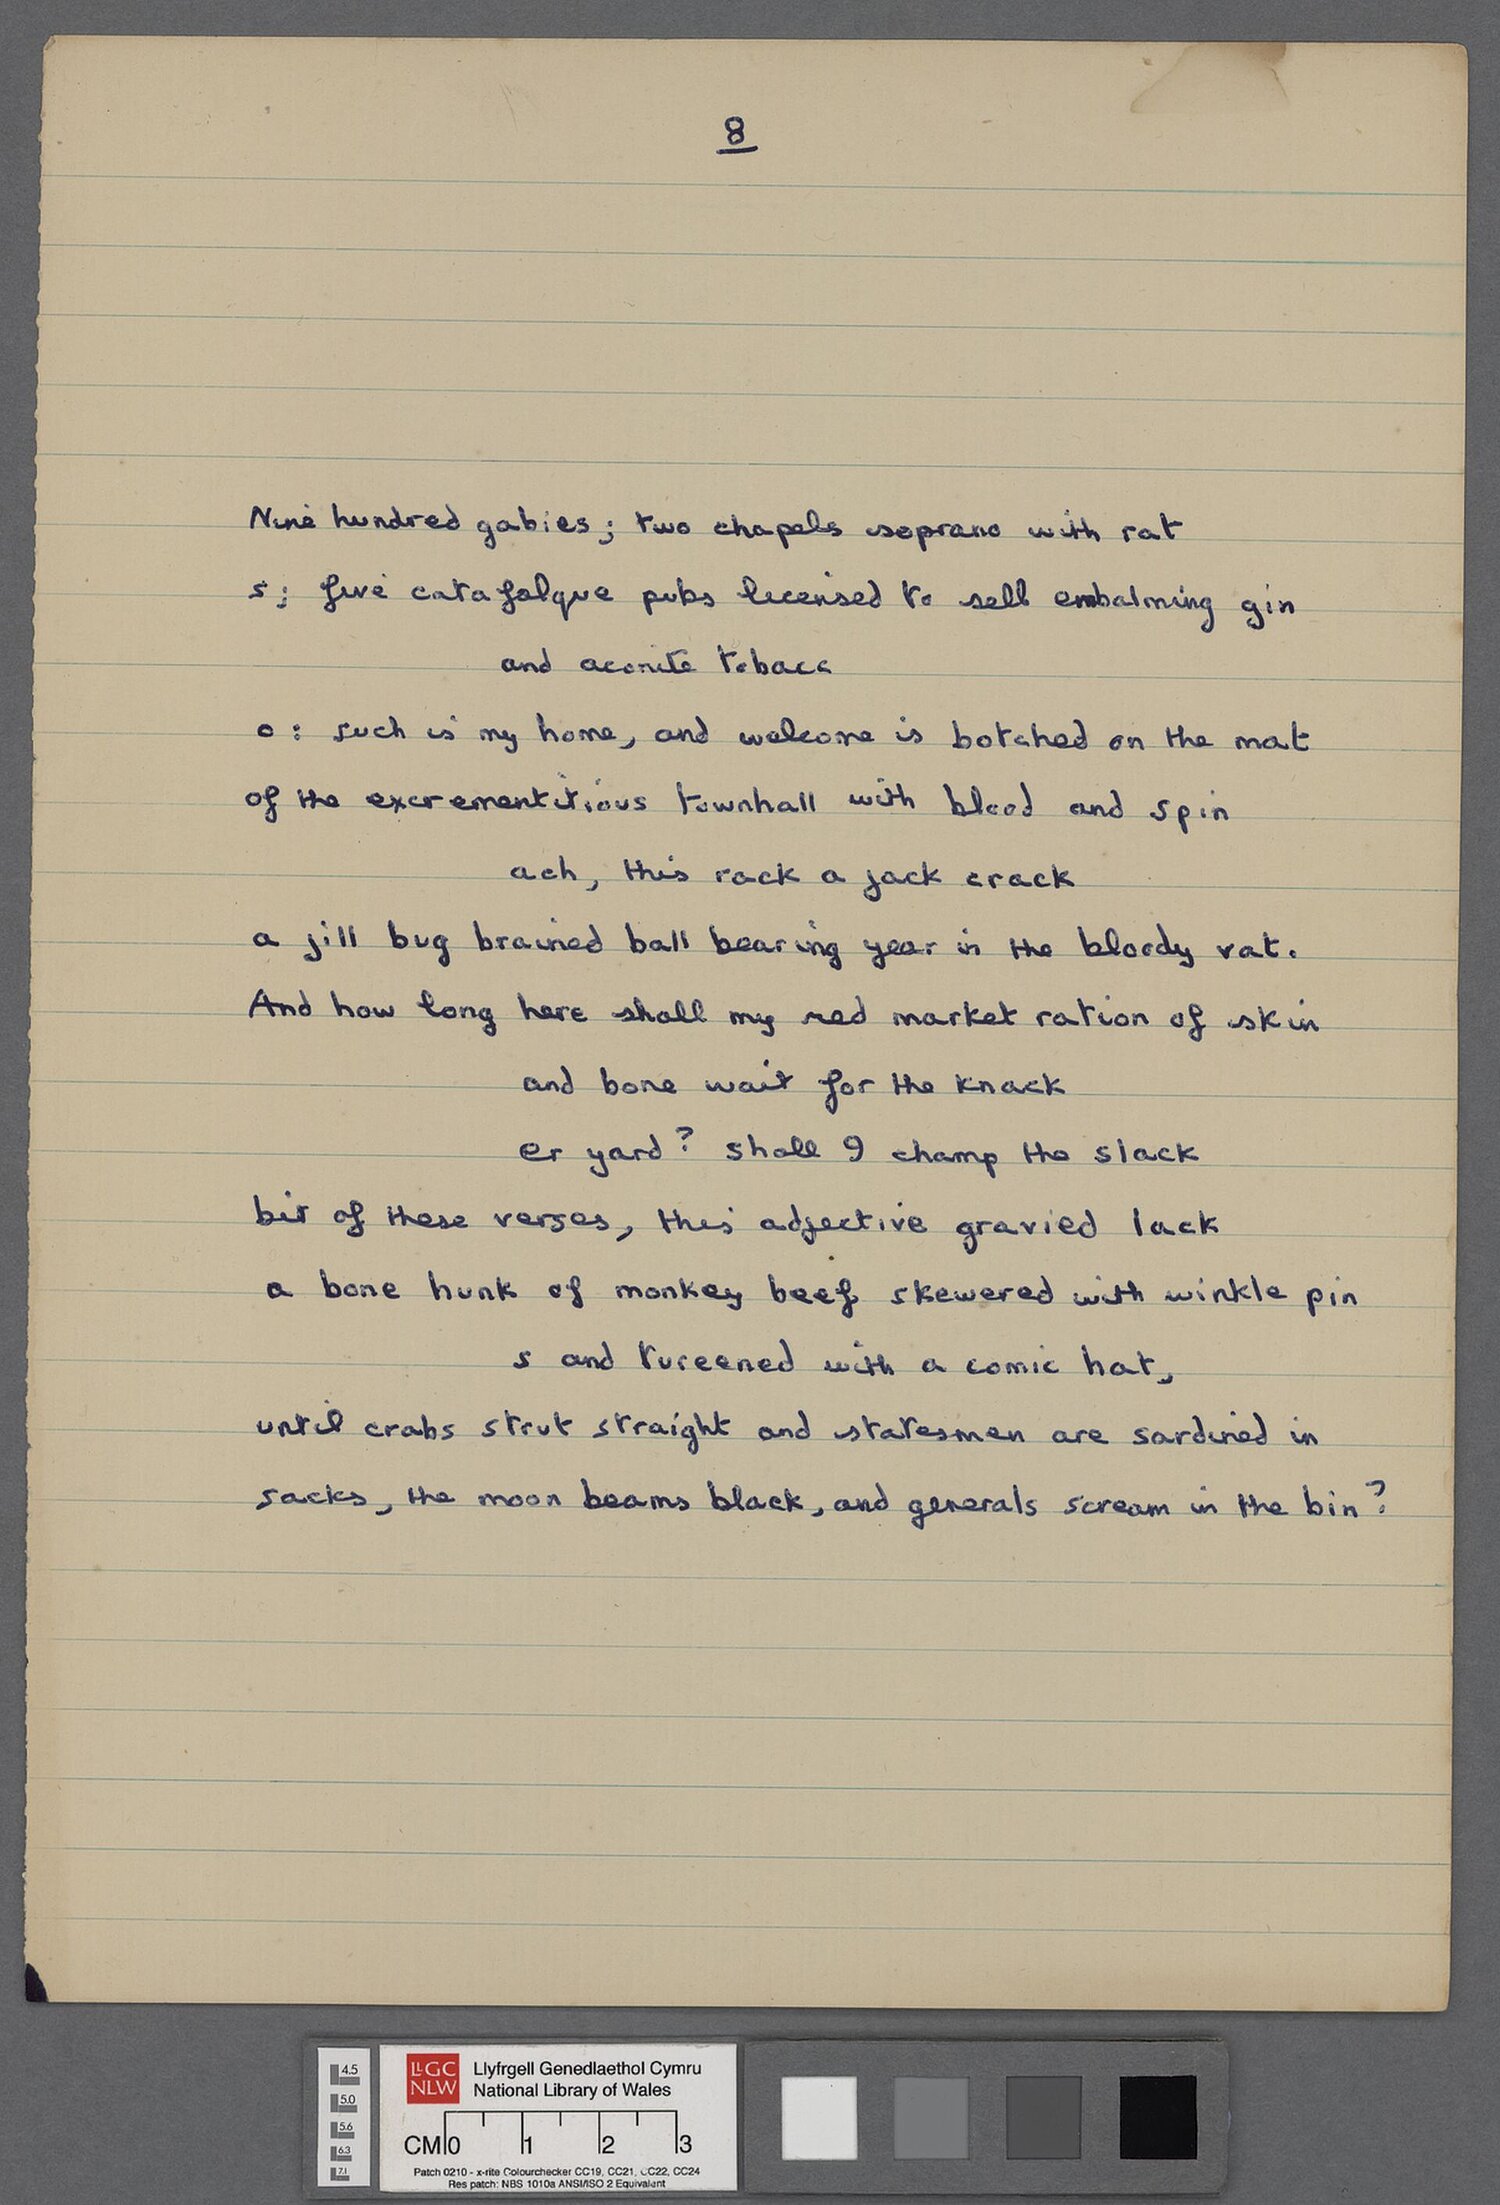 8
Nine hundred gabies; two chapels soprano with rat
s; five catafalque pubs licensed to sell embalming gin
and aconite tobacc
o: such is my home, and welcome is botched on the mat
of the excrementitious townhall with blood and spin
ach, this rack a jack crack
a jill bug brained ball bearing year in the bloody vat.
And how long here shall my red market ration of skin
and bone wait for the knack
er yard? shall I champ the slack
bit of these verses, this adjective gravied lack
a bone hunk of monkey beef skewered with winkle pin
s and tureened with a comic hat,
until crabs strut straight and statesmen are sardined in
sacks, the moon beams black, and generals scream in the bin?
4.5
5.0
5.6
6.3
7.1
LLGC
NLW
Llyfrgell Genedlaethol Cymru
National Library of Wales
CM 0 1 2 3
Patch 0210 - x-rite Colourchecker CC19, CC21, CC22, CC24
Res patch: NBS 1010a ANSI/ISO 2 Equivalent